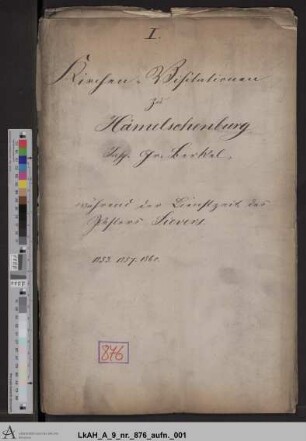 I.
Kirchen-Visitationen
zu
Hämelschenburg
Insp. Gr. Berkel,
während der Dienstzeit des
Pastors Sievers
1853. 1857. 1860.
876
LkAH_A_9_nr._876_aufn._001